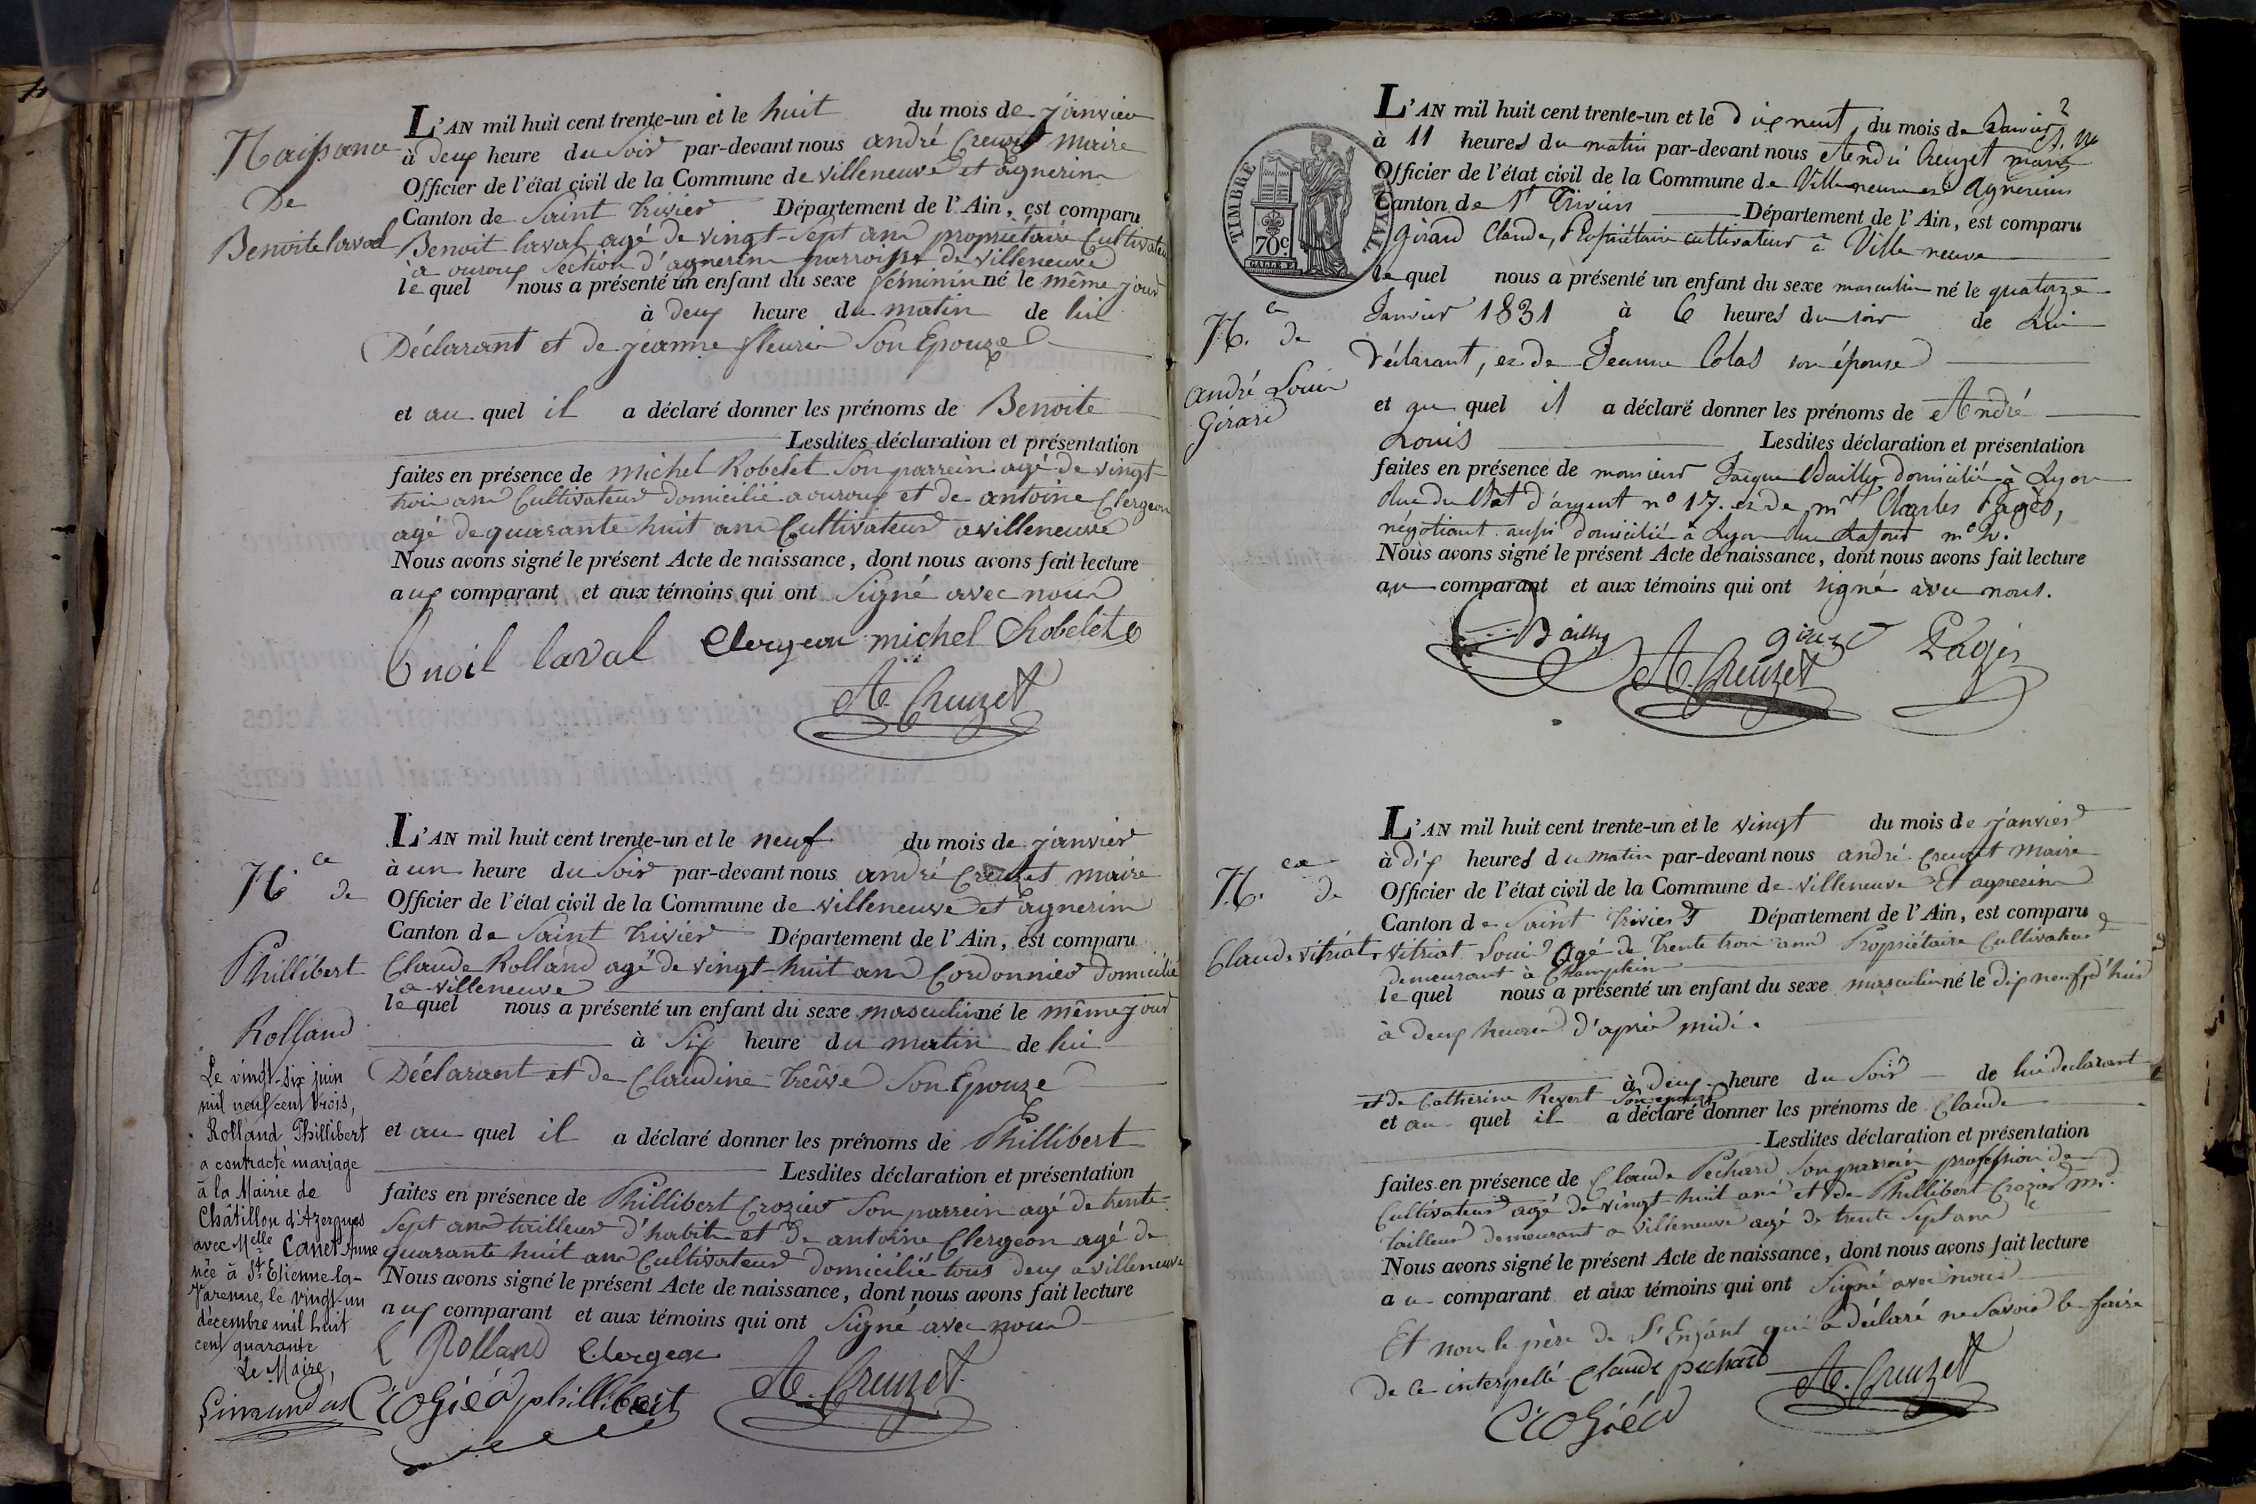 Naissance
De
Benoite laval
L'AN mil huit cent trente-un et le huit du mois de janvier
à deux heure du Soir par-devant nous andré Creuzet maire
Officier de l'état civil de la Commune de villeneuve et agnerins
Canton de Saint trivier Département de l'Ain, est comparu
Benoit laval agé de vingt-sept ans propriétaire Cultivateur
à ouroux Section d'agnerins parroisse de villeneuve
le quel nous a présenté un enfant du sexe féminin né le même jour
à deux heure du matin de lui
Déclarant et de jeanne fleurie Son Epouze
et au quel il a déclaré donner les prénoms de Benoite
Lesdites déclaration et présentation
faites en présence de michel Robelet Son parrein agé de vingt
trois ans Cultivateur domicilié a ouroux et de antoine Clergeon
agé de quarante huit ans Cultivateur a villeneuve
Nous avons signé le présent Acte de naissance, dont nous avons fait lecture
aux comparant et aux témoins qui ont Signé avec nous
benoit laval Clergeon michel Robelet
At. Creuzet
N.ce de
Phillibert
Rolland
L'AN mil huit cent trente-un et le neuf du mois de janvier
à un heure du Soir par-devant nous andré Creuzet maire
Officier de l'état civil de la Commune de villeneuve et agnerins
Canton de Saint trivier Département de l'Ain, est comparu
Claude Rolland agé de vingt-huit ans Cordonnier domicilié
a villeneuve
le quel nous a présenté un enfant du sexe masculin né le même jour
à Six heure du matin de lui
Déclarant et de Claudine Trêve Son Epouze
et au quel il a déclaré donner les prénoms de Phillibert
Lesdites déclaration et présentation
faites en présence de Phillibert Crozier Son parrein agé de trente
Sept ans tailleur d'habits et de antoine Clergeon agé de
quarante huit ans Cultivateur domicilié tous deux a villeneuve
Nous avons signé le présent Acte de naissance, dont nous avons fait lecture
aux comparant et aux témoins qui ont Signé avec nous
C Rolland Clergeon
Crozier phillibert At. Creuzet
Le vingt-six juin
mil neuf cent trois,
Rolland Phillibert
a contracté mariage
à la Mairie de
Châtillon d'Azergues
avec Melle Canet Anne
née à St Etienne-la-
Varenne, le vingt-un
décembre mil huit
cent quarante
Le Maire,
2
TIMBRE ROYAL
70c
N.ce de
andré Louis
Girard
L'AN mil huit cent trente-un et le dix neuf du mois de Janvier
à 11 heures du matin par-devant nous André Creuzet maire
Officier de l'état civil de la Commune de Villeneuve et Agnereins
Canton de St Trivier Département de l'Ain, est comparu
Girard Claude, Propriétaire cultivateur à Ville neuve
le quel nous a présenté un enfant du sexe masculin né le quatorze
Janvier 1831 à 6 heures du soir de Lui
déclarant, et de Jeanne Colas son épouse
et au quel il a déclaré donner les prénoms de André
Louis Lesdites déclaration et présentation
faites en présence de monsieur Jaque Bailly domicilié à Lyon
Rue du Plat d'argent n° 17. et de mr Charles Pagès,
négotiant aussi domicilié à Lyon rue Lafont
Nous avons signé le présent Acte de naissance, dont nous avons fait lecture
au comparant et aux témoins qui ont signé avec nous.
Bailly Girard Pagès
At. Creuzet
N.ce de
Claude vitriat
L'AN mil huit cent trente-un et le vingt du mois de janvier
à dix heures du matin par-devant nous andré Creuzet maire
Officier de l'état civil de la Commune de villeneuve Et agnereins
Canton de Saint trivier Département de l'Ain, est comparu
vitriat Louis agé de trente trois ans Propriétaire Cultivateur
demeurant à Champtein
le quel nous a présenté un enfant du sexe masculin né le dix neuf, d'hier
à deux heures d'après midi.
à deux heure du Soir de lui déclarant
et de Catherine Revert Son epouse
et au quel il a déclaré donner les prénoms de Claude
Lesdites déclaration et présentation
faites en présence de Claude Pechard Son parrein profession de
Cultivateur agé de vingt huit ans et de Phillibert Crozier md
tailleur demeurant a villeneuve agé de trente Sept ans
Nous avons signé le présent Acte de naissance, dont nous avons fait lecture
au comparant et aux témoins qui ont Signé avec nous
Et non le père de St Enfant qui a déclaré ne Savoir le faire
de ce interpellé Claude pechard At. Creuzet
Crozier